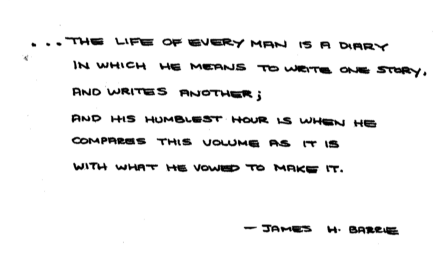 ...THE LIFE OF EVERY MAN IS A DIARY
IN WHICH HE MEANS TO WRITE ONE STORY,
AND WRITES ANOTHER;
AND HIS HUMBLEST HOUR IS WHEN HE
COMPARES THIS VOLUME AS IT IS
WITH WHAT HE VOWED TO MAKE IT.
— JAMES H. BARRIE